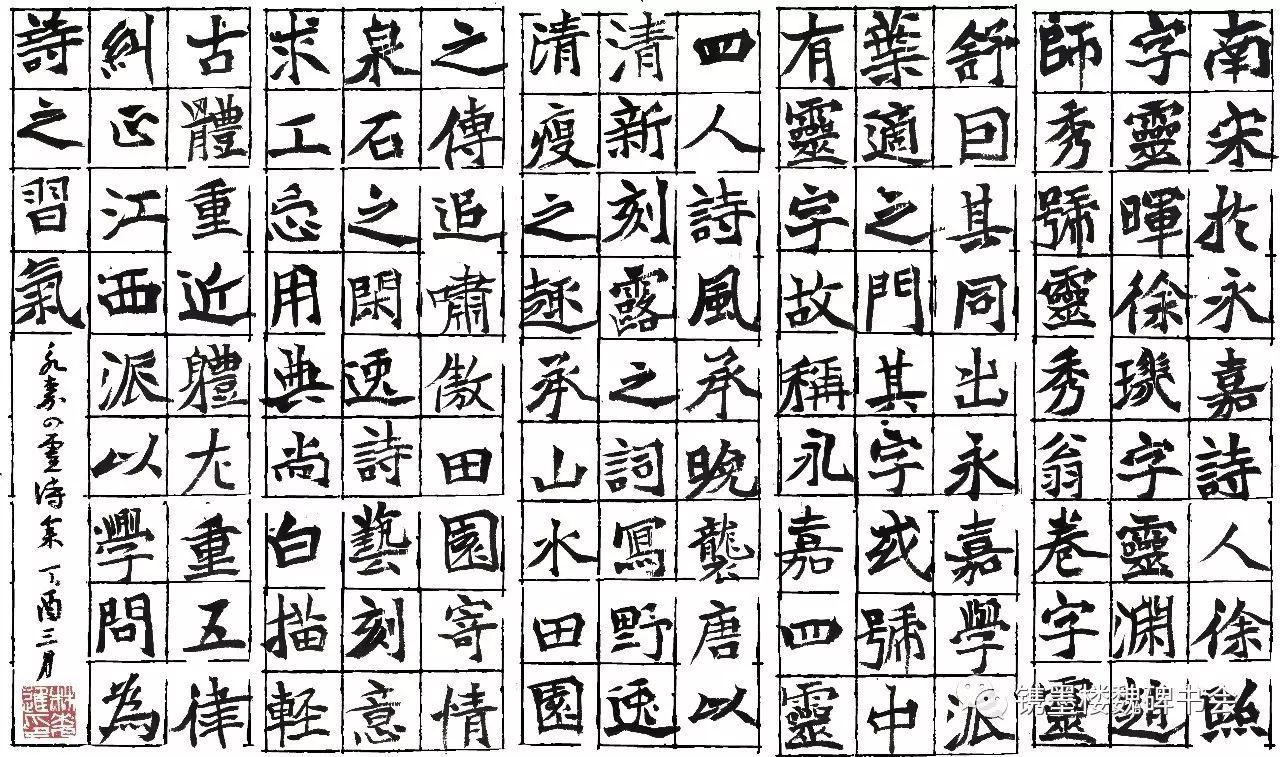 南宋扵永嘉詩人徐照
字靈暉徐璣字靈淵趙
師秀號靈秀翁卷字靈
舒曰其同出永嘉學派
葉適之門其字或號中
有靈字故稱永嘉四靈
四人詩風承晚襲唐以
清新刻露之詞寫野逸
清瘦之趣承山水田園
之傳追嘯傲田園寄情
泉石之閑逸詩藝刻意
求工忌用典尚白描輕
古體重近體尤重五律
糾正江西派以學問為
詩之習氣
永嘉四靈诗集 丁酉三月
镌墨楼魏碑书会